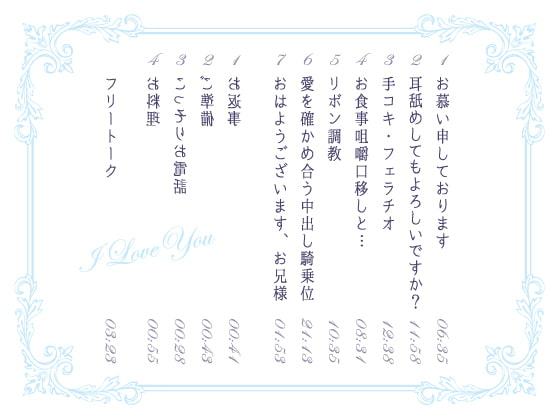 1 お慕い申しております 06:35
2 耳舐めしてもよろしいですか? 11:58
3 手コキ・フェラチオ 12:38
4 お食事咀嚼口移しと… 08:31
5 リボン調教 10:35
6 愛を確かめ合う中出し騎乗位 21:13
7 おはようございます、お兄様 01:53
1 お返事 00:41
2 ご準備 00:43
3 こっそりお電話 00:28
4 お料理 00:55
フリートーク 03:23
I Love You